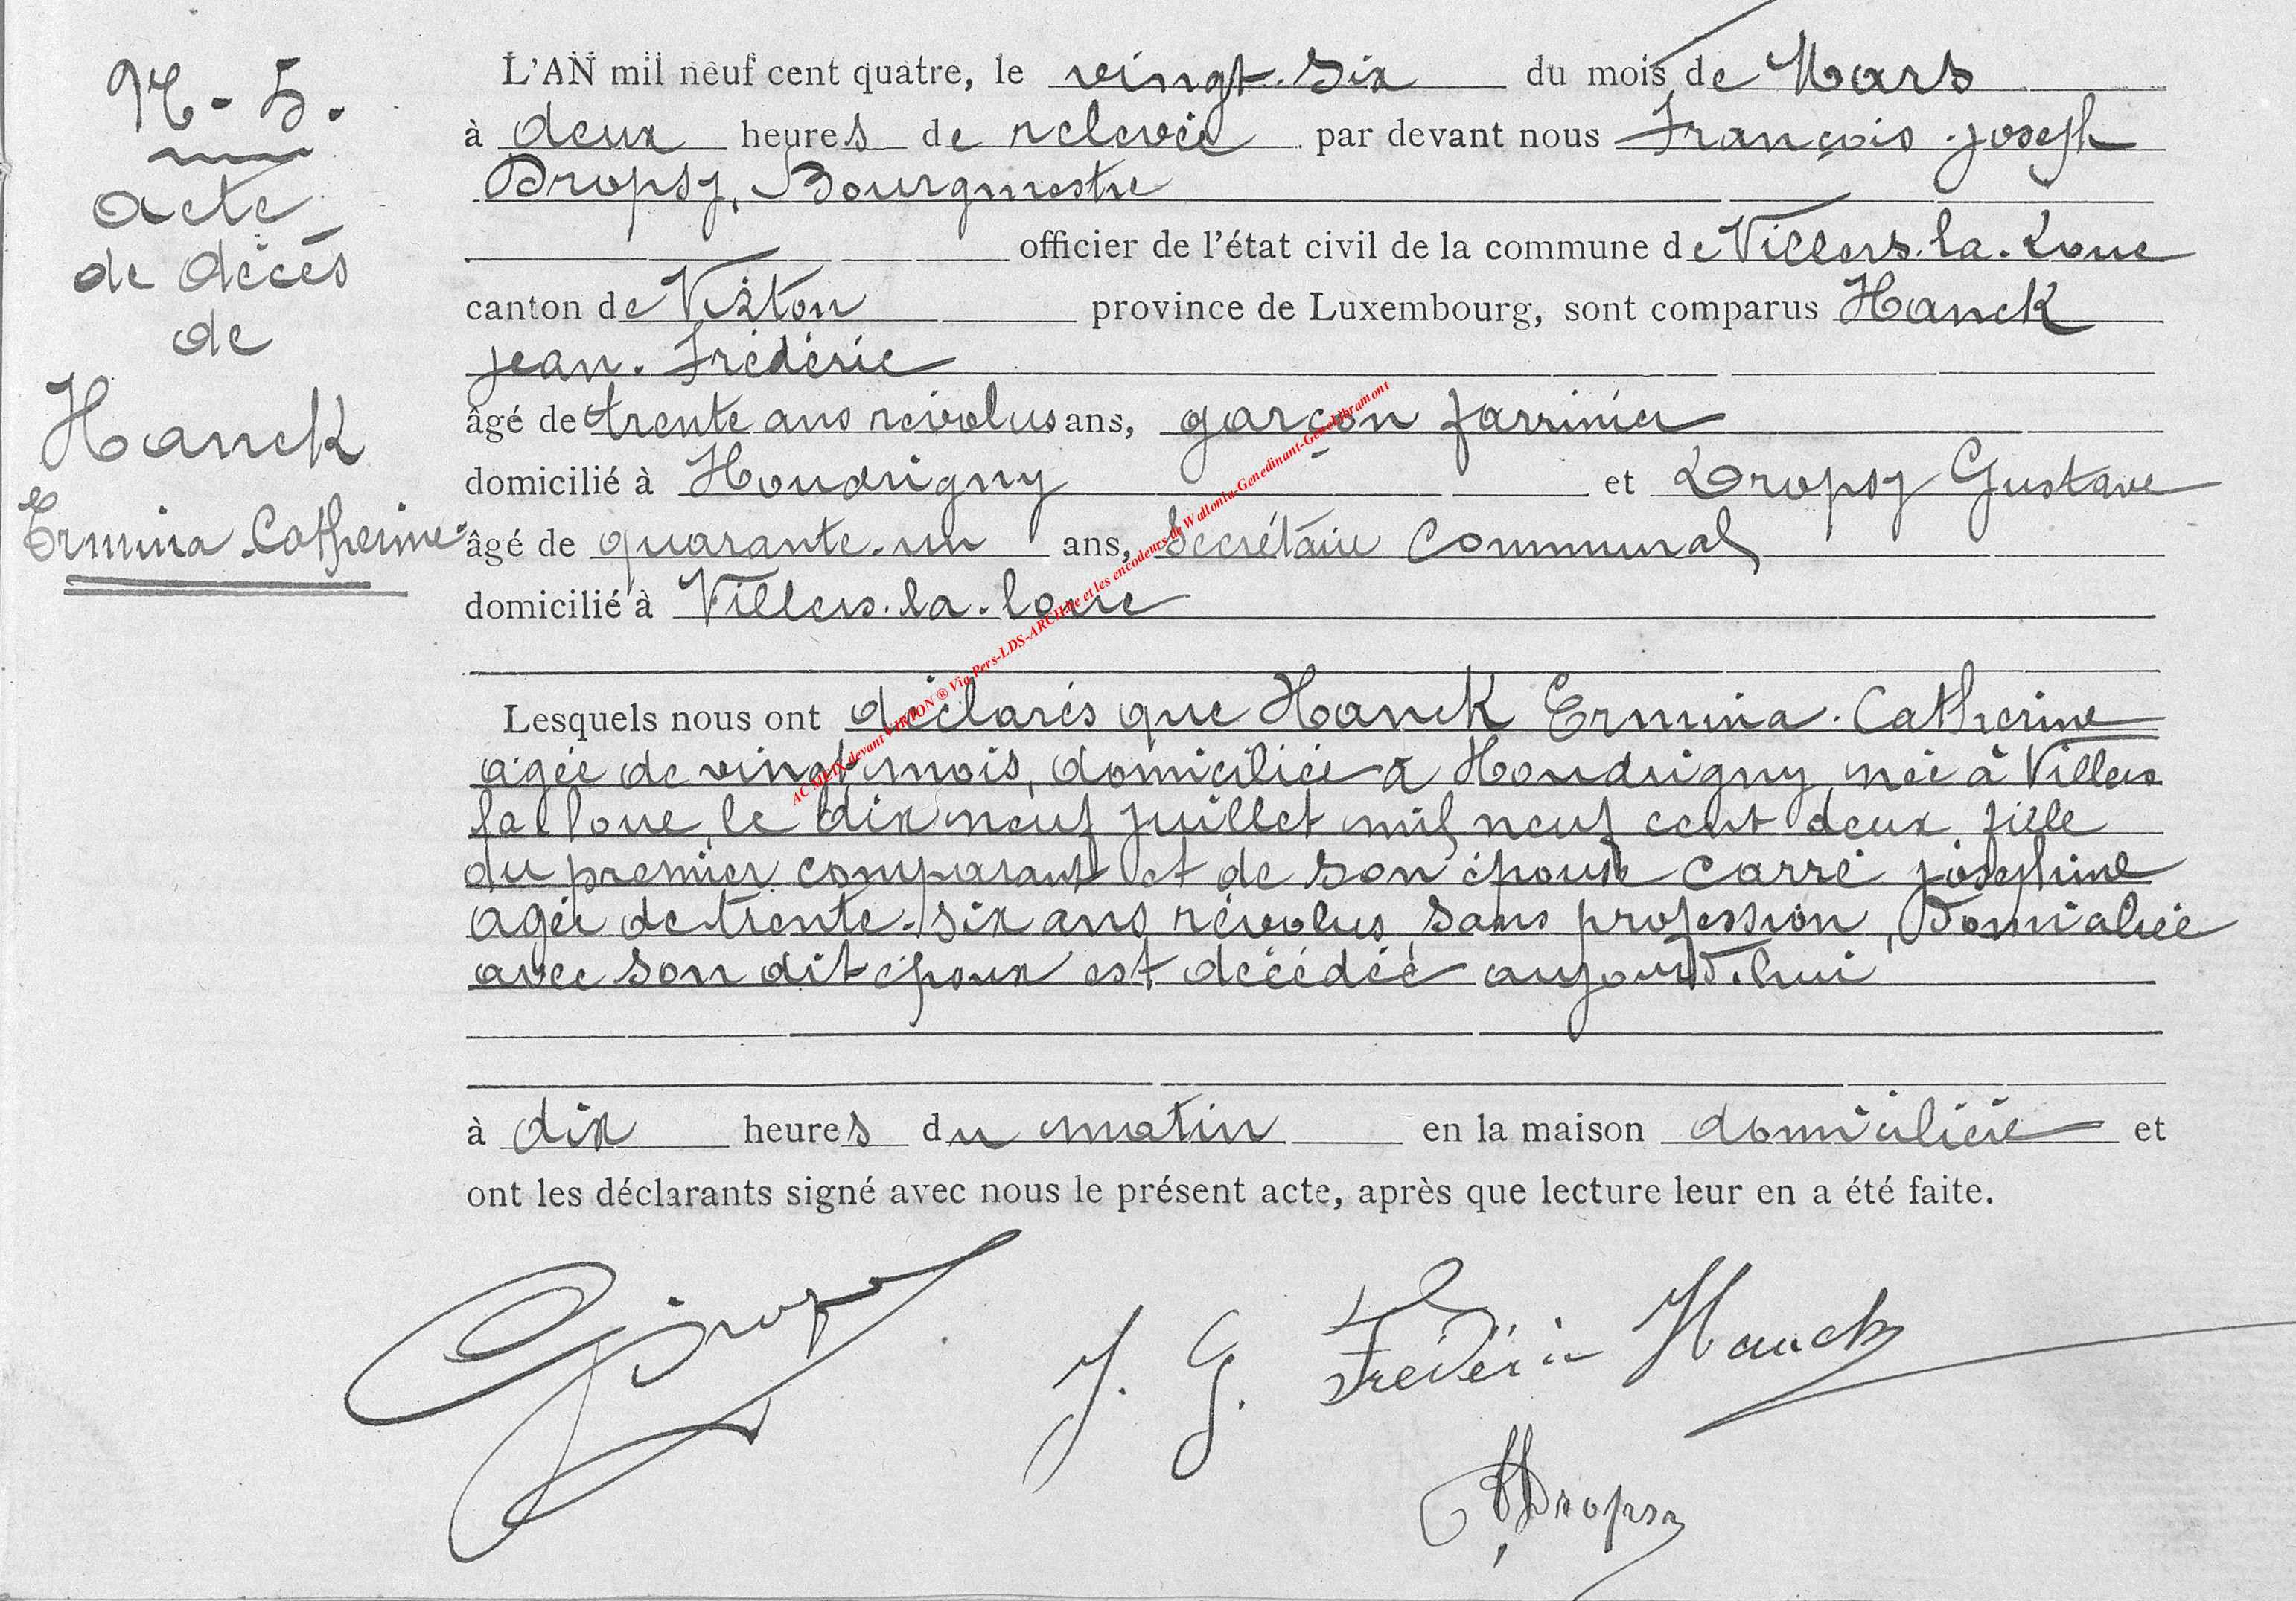 N - 5.
acte
de décès
de
Hanck
Ermina Catherine
L'AN mil neuf cent quatre, le vingt-six du mois de Mars
à deux heures de relevée par devant nous François joseph
Dropsy, Bourgmestre
officier de l'état civil de la commune de Villers-la-Loue
canton de Virton province de Luxembourg, sont comparus Hanck
jean-Frédéric
âgé de trente ans révolus ans, garçon farinier
domicilié à Houdrigny et Dropsy Gustave
âgé de quarante-un ans, Secrétaire Communal
domicilié à Villers-la-loue
Lesquels nous ont déclarés que Hanck Ermina-Catherine
agée de vingt mois, domiciliée à Houdrigny, née à Villers
la loue, le dix neuf juillet mil neuf cent deux, fille
du premier comparant et de son épouse Carré joséphine
agée de trente-six ans révolus, sans profession, Domiciliée
avec son dit époux est décédée aujourd'hui
à dix heures du matin en la maison domiciliére et
ont les déclarants signé avec nous le présent acte, après que lecture leur en a été faite.
GDropsy
J. G. Fréderic Hanck
Dropsy